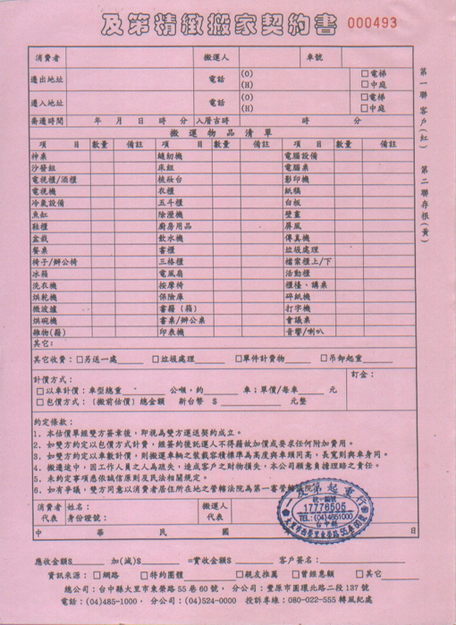 及第精緻搬家契約書 000493
消費者 搬運人 車號
遷出地址 電話 (O) (H) □電梯 □中庭
遷入地址 電話 (O) (H) □電梯 □中庭
喬遷時間 年 月 日 時 分 入厝吉時 時 分
第一聯客戶(紅) 第二聯存根(黃)
搬運物品清單
項 目 數量 備註 項 目 數量 備註 項 目 數量 備註
神桌 縫紉機 電腦設備
沙發組 床組 電腦桌
電視櫃/酒櫃 梳妝台 影印機
電視機 衣櫃 紙箱
冷氣設備 五斗櫃 白板
魚缸 除溼機 壁畫
鞋櫃 廚房用品 屏風
盆栽 飲水機 傳真機
餐桌 書櫃 垃圾處理
椅子/辦公椅 三格櫃 檔案櫃上/下
冰箱 電風扇 活動櫃
洗衣機 按摩椅 櫃檯、講桌
烘乾機 保險庫 碎紙機
微波爐 書籍(箱) 打字機
烘碗機 書桌/辦公桌 會議桌
雜物(箱) 印表機 音響/喇叭
其它:
其它收費:□另送一處 □垃圾處理 □單件計費物 □吊卸起重
計價方式: 訂金:
□以車計價:車型總重 公噸,約 車;單價/每車 元
□包價方式:(搬前估價)總金額 新台幣 $ 元整
約定條款:
1. 本估價單經雙方簽章後,即視為雙方運送契約成立。
2. 如雙方約定以包價方式計費,經簽約後託運人不得藉故加價或要求任何附加費用。
3. 如雙方約定以車數計價,則搬運車輛之裝載容積標準為高度與車頭同高,長寬則與車身同。
4. 搬遷途中,因工作人員之人為疏失,造成客戶之財物損失,本公司願意負擔理賠之責任。
5. 未約定事項悉依誠信原則及民法相關規定。
6. 如有爭議,雙方同意以消費者居住所在地之管轄法院為第一審管轄法院
及第起重行
統一編號
17778505
TEL:(04)4851000
台中縣
大里市西榮里東榮路55巷60號
消費者 姓名: 搬運人
代表 身份證號: 代表
中 華 民 國
應收金額$ 加(減)$ =實收金額$ 客戶簽名:
資訊來源:□網路 □特約團體 □親友推薦 □曾經惠顧 □其它
總公司:台中縣大里市東榮路55巷60號, 分公司:豐原市圓環北路二段137號
電話:(04)485-1000, 分公司:(04)524-0000 投訴專線:080-022-555 轉風紀處